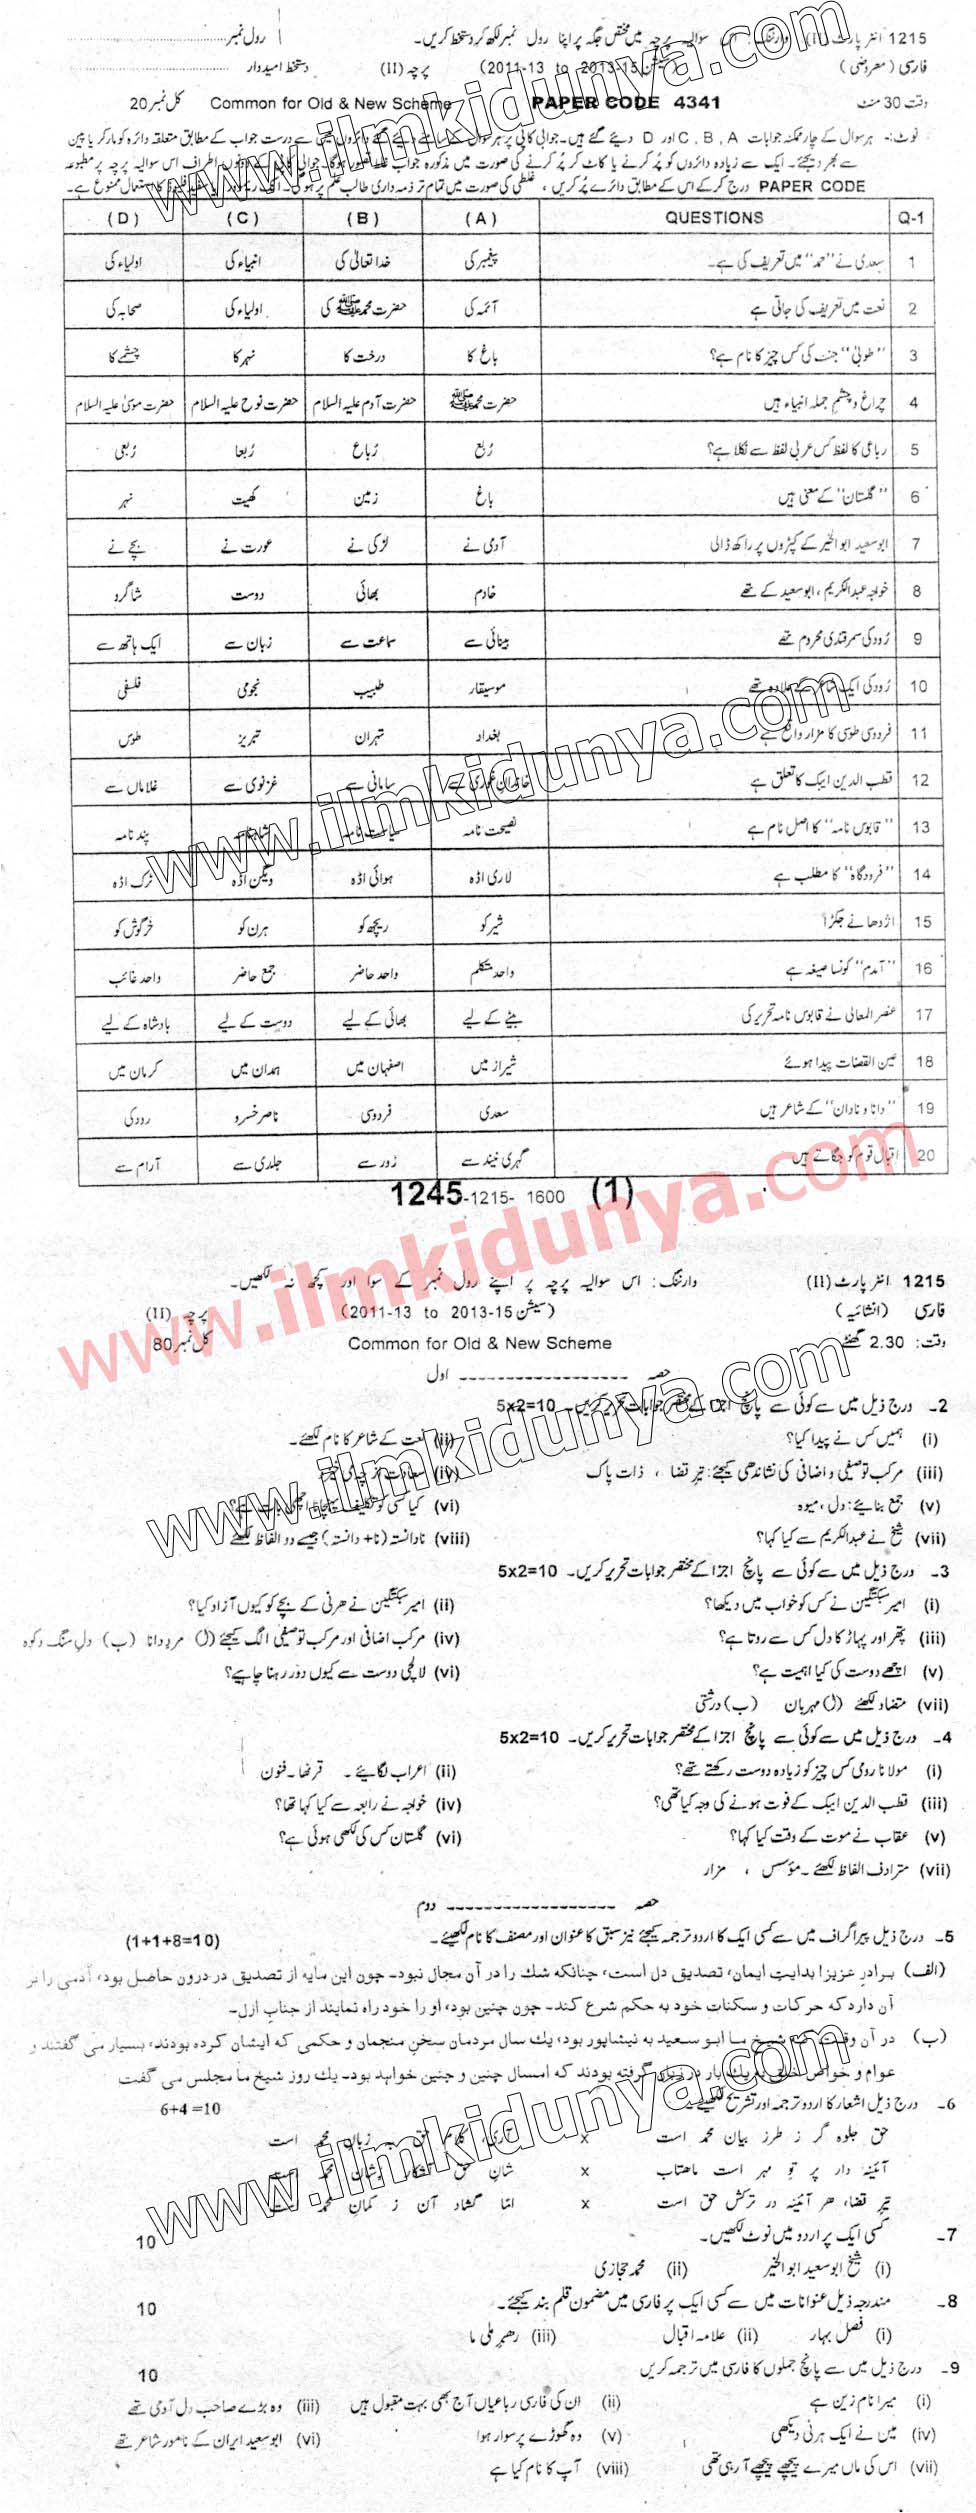 1215 انٹر پارٹ (II) وارننگ: اس سوالیہ پرچہ میں مختص جگہ پر اپنا رول نمبر لکھ کر دستخط کریں۔ رول نمبر
فارسی (معروضی) (سیشن 2013-15 to 2011-13) پرچہ (II) دستخط امیدوار
وقت 30 منٹ PAPER CODE 4341 Common for Old & New Scheme کل نمبر 20
نوٹ:- ہر سوال کے چار ممکنہ جوابات C , B , A اور D دیئے گئے ہیں۔ جوابی کاپی پر ہر سوال کے سامنے دیئے گئے دائروں میں سے درست جواب کے مطابق متعلقہ دائرہ کو مارکر یا پین
سے بھر دیجئے۔ ایک سے زیادہ دائروں کو پُر کرنے یا کاٹ کر پُر کرنے کی صورت میں مذکورہ جواب غلط تصور ہوگا۔ جوابی کاپی کے دونوں اطراف اس سوالیہ پرچہ پر مطبوعہ
PAPER CODE درج کر کے اس کے مطابق دائرے پُر کریں، غلطی کی صورت میں تمام تر ذمہ داری طالب علم پر ہوگی۔ استعمال ممنوع ہے۔
Q-1 QUESTIONS (A) (B) (C) (D)
1 سعدی نے "حمد" میں تعریف کی ہے۔ پیغمبر کی خدا تعالیٰ کی انبیاء کی اولیاء کی
2 نعت میں تعریف کی جاتی ہے آئمہ کی حضرت محمد ﷺ کی اولیاء کی صحابہ کی
3 "طوبیٰ" جنت کی کس چیز کا نام ہے؟ باغ کا درخت کا نہر کا چشمے کا
4 چراغ و چشمِ جملہ انبیاء ہیں حضرت محمد ﷺ حضرت آدم علیہ السلام حضرت نوح علیہ السلام حضرت موسیٰ علیہ السلام
5 رباعی کا لفظ کس عربی لفظ سے نکلا ہے؟ رُبع رُباع رُبعا رُبعی
6 "گلستان" کے معنی ہیں باغ زمین کھیت نہر
7 ابو سعید ابوالخیر کے کپڑوں پر راکھ ڈالی آدمی نے لڑکی نے عورت نے بچے نے
8 خواجہ عبدالکریم، ابو سعید کے تھے خادم بھائی دوست شاگرد
9 رُودکی سمرقندی محروم تھے بینائی سے سماعت سے زبان سے ایک ہاتھ سے
10 رُودکی ایک شاعر کے علاوہ تھے موسیقار طبیب نجومی فلسفی
11 فردوسی طوسی کا مزار واقع ہے بغداد تہران تبریز طوس
12 قطب الدین ایبک کا تعلق ہے خاندان غوری سے سامانی سے غزنوی سے غلاماں سے
13 "قابوس نامہ" کا اصل نام ہے نصیحت نامہ سیاست نامہ شاہنامہ پند نامہ
14 "فرودگاہ" کا مطلب ہے لاری اڈہ ہوائی اڈہ ویگن اڈہ ٹرک اڈہ
15 اژدھا نے جکڑا شیر کو ریچھ کو ہرن کو خرگوش کو
16 "آمدم" کونسا صیغہ ہے واحد متکلم واحد حاضر جمع حاضر واحد غائب
17 عنصر المعالی نے قابوس نامہ تحریر کی بیٹے کے لیے بھائی کے لیے دوست کے لیے بادشاہ کے لیے
18 عین القضات پیدا ہوئے شیراز میں اصفہان میں ہمدان میں کرمان میں
19 "دانا و نادان" کے شاعر ہیں سعدی فردوسی ناصر خسرو رودکی
20 اقبال قوم کو جگاتے ہیں گہری نیند سے زور سے جلدی سے آرام سے
1245-1215- 1600 (1)
1215 انٹر پارٹ (II) وارننگ: اس سوالیہ پرچہ پر اپنے رول نمبر کے سوا اور کچھ نہ لکھیں۔
فارسی (انشائیہ) (سیشن 2013-15 to 2011-13) پرچہ (II)
وقت: 2.30 گھنٹے Common for Old & New Scheme کل نمبر 80
حصہ ------------------ اول
2۔ درج ذیل میں سے کوئی سے پانچ اجزا کے مختصر جوابات تحریر کریں۔ 5x2=10
(i) ہمیں کس نے پیدا کیا؟ (ii) نعت کے شاعر کا نام لکھئے۔
(iii) مرکب توصیفی و اضافی کی نشاندھی کیجئے: تیرِ قضا ، ذات پاک (iv)
(v) جمع بنایئے: دل، میوہ (vi) کیا کسی کو تکلیف پہنچانا اچھی بات ہے؟
(vii) شیخ نے عبدالکریم سے کیا کہا؟ (viii) نادانستہ (نا+ دانستہ) جیسے دو الفاظ لکھئے
3۔ درج ذیل میں سے کوئی سے پانچ اجزا کے مختصر جوابات تحریر کریں۔ 5x2=10
(i) امیر سبکتگین نے کس کو خواب میں دیکھا؟ (ii) امیر سبکتگین نے ھرنی کے بچے کو کیوں آزاد کیا؟
(iii) پتھر اور پہاڑ کا دل کس سے روتا ہے؟ (iv) مرکب اضافی اور مرکب توصیفی الگ کیجئے (ا) مردِ دانا (ب) دلِ سنگ و کوہ
(v) اچھے دوست کی کیا اہمیت ہے؟ (vi) لالچی دوست سے کیوں دور رہنا چاہیے؟
(vii) متضاد لکھئے (ا) مہربان (ب) درشتی
4۔ درج ذیل میں سے کوئی سے پانچ اجزا کے مختصر جوابات تحریر کریں۔ 5x2=10
(i) مولانا رومی کس چیز کو زیادہ دوست رکھتے تھے؟ (ii) اعراب لگایئے۔ قرنھا۔ فنون
(iii) قطب الدین ایبک کے فوت ہونے کی وجہ کیا تھی؟ (iv) خواجہ نے رابعہ سے کیا کہا تھا؟
(v) عقاب نے موت کے وقت کیا کہا؟ (vi) گلستان کس کی لکھی ہوئی ہے؟
(vii) مترادف الفاظ لکھئے۔ مؤسس ، مزار
حصہ ------------------ دوم
5۔ درج ذیل پیراگراف میں سے کسی ایک کا اردو ترجمہ کیجئے نیز سبق کا عنوان اور مصنف کا نام لکھیئے۔ (1+1+8=10)
(الف) برادرِ عزیز! بدایتِ ایمان، تصدیق دل است، چنانکہ شك را در آن مجال نبود۔ چون این مایه از تصدیق در درون حاصل بود، آدمی را بر
آن دارد که حرکات و سکنات خود به حکم شرع کند۔ چون چنین بود، او را خود راه نمایند از جنابِ ازل۔
(ب) در آن وقت که شیخ ما ابو سعید به نیشاپور بود، یك سال مردمان سخنِ منجمان و حکمی که ایشان کرده بودند، بسیار می گفتند و
عوام و خواصِ خلق به یك بار در زبان گرفته بودند که امسال چنین و چنین خواہد بود۔ یك روز شیخ ما مجلس می گفت
6۔ درج ذیل اشعار کا اردو ترجمہ اور تشریح لکھیئے 6+4 =10
حق جلوہ گر ز طرز بیان محمد است x کلام حق زبان محمد است
آئینہ دار پر تو مہر است ماھتاب x شان حق آشکار ز شان محمد است
تیر قضا، ھر آئینہ در ترکش حق است x امّا گشاد آن ز کمان محمد است
7۔ کسی ایک پر اردو میں نوٹ لکھیں۔ 10
(i) شیخ ابو سعید ابوالخیر (ii) محمد حجازی
8۔ مندرجہ ذیل عنوانات میں سے کسی ایک پر فارسی میں مضمون قلم بند کیجئے۔ 10
(i) فصل بہار (ii) علامہ اقبال (iii) رھبر ملی ما
9۔ درج ذیل میں سے پانچ جملوں کا فارسی میں ترجمہ کریں 10
(i) میرا نام زین ہے (ii) ان کی فارسی رباعیاں آج بھی بہت مقبول ہیں (iii) وہ بڑے صاحب دل آدمی تھے
(iv) میں نے ایک ہرنی دیکھی (v) وہ گھوڑے پر سوار ہوا (vi) ابو سعید ایران کے نامور شاعر تھے
(vii) اس کی ماں میرے پیچھے پیچھے آرہی تھی (viii) آپ کا نام کیا ہے
www.ilmkidunya.com
www.ilmkidunya.com
www.ilmkidunya.com
www.ilmkidunya.com
www.ilmkidunya.com